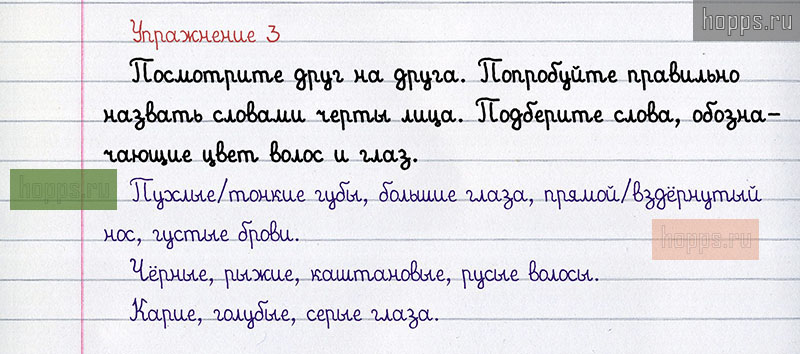 hopps.ru
Упражнение 3
Посмотрите друг на друга. Попробуйте правильно
назвать словами черты лица. Подберите слова, обозна-
чающие цвет волос и глаз.
hopps.ru
Пухлые/тонкие губы, большие глаза, прямой/вздёрнутый
hopps.ru
нос, густые брови.
Чёрные, рыжие, каштановые, русые волосы.
Карие, голубые, серые глаза.